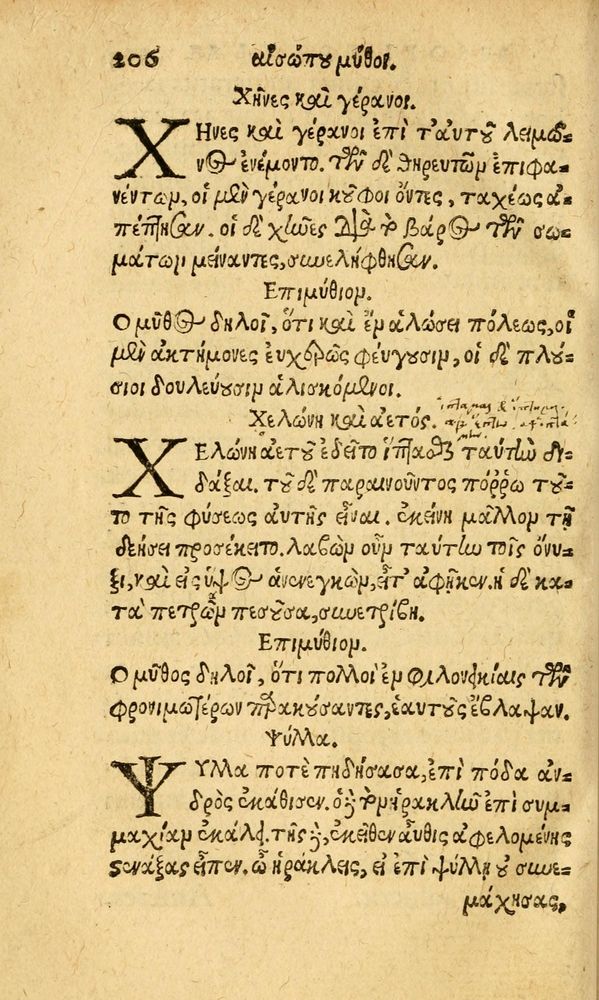 206 αἰσώπου μῦθοι.
Χῆνες καὶ γέρανοι.
ΧΗνες καὶ γέρανοι ἐπὶ ταυτοῦ λειμῶ-
νος ἐνέμοντο. τῶν δὲ θηρευτῶν ἐπιφα-
νέντων, οἱ μὲν γέρανοι κοῦφοι ὄντες, ταχέως ἀ-
πέπτησαν. οἱ δὲ χῆνες διὰ τὸ βάρος τῶν σω-
μάτων μείναντες, συνελήφθησαν.
Επιμύθιον.
Ο μῦθος δηλοῖ, ὅτι καὶ ἐν ἁλώσει πόλεως, οἱ
μὲν ἀκτήμονες εὐχερῶς φεύγουσιν, οἱ δὲ πλού-
σιοι δουλεύουσιν ἁλισκόμενοι.
Χελώνη καὶ ἀετός.
ΧΕλώνη ἀετοῦ ἐδεῖτο ἵπτασθαι ταύτην δι-
δάξαι. τοῦ δὲ παραινοῦντος πόῤῥω τοῦ-
το τῆς φύσεως αὐτῆς εἶναι. ἐκείνη μᾶλλον τῇ
δεήσει προσέκειτο. λαβὼν οὖν ταύτην τοῖς ὄνυ-
ξι, καὶ εἰς ὕψος ἀνενεγκὼν, εἶτ᾽ ἀφῆκεν. ἡ δὲ κα-
τὰ πετρῶν πεσοῦσα, συνετρίβη.
Επιμύθιον.
Ο μῦθος δηλοῖ, ὅτι πολλοὶ ἐν φιλονεικίαις τῶν
φρονιμωτέρων παρακούσαντες, ἑαυτοὺς ἔβλαψαν.
Ψύλλα.
ΨΥλλα ποτὲ πηδήσασα, ἐπὶ πόδα ἀν-
δρὸς ἐκάθισεν. ὁ δὲ τὸν ἡρακλῆν ἐπὶ συμ-
μαχίαν ἐκάλει. τῆς δὲ, ἐκεῖθεν αὖθις ἀφελομένης
στενάξας εἶπεν. ὦ ἡράκλεις, εἰ ἐπὶ ψύλλῃ οὐ συνε-
μάχησας,